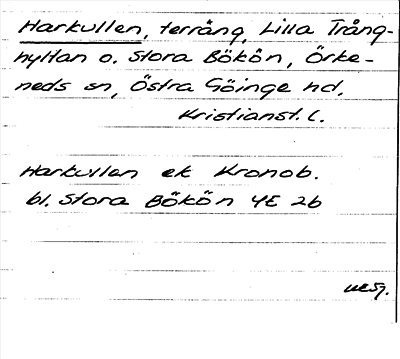 Harkullen, terräng, Lilla Trång-
hyltan o. Stora Bökön, Örke-
neds sn, Östra Göinge hd.
Kristianst. l.
Harkullen ek Kronob.
bl. Stora Bökön 4E 2b